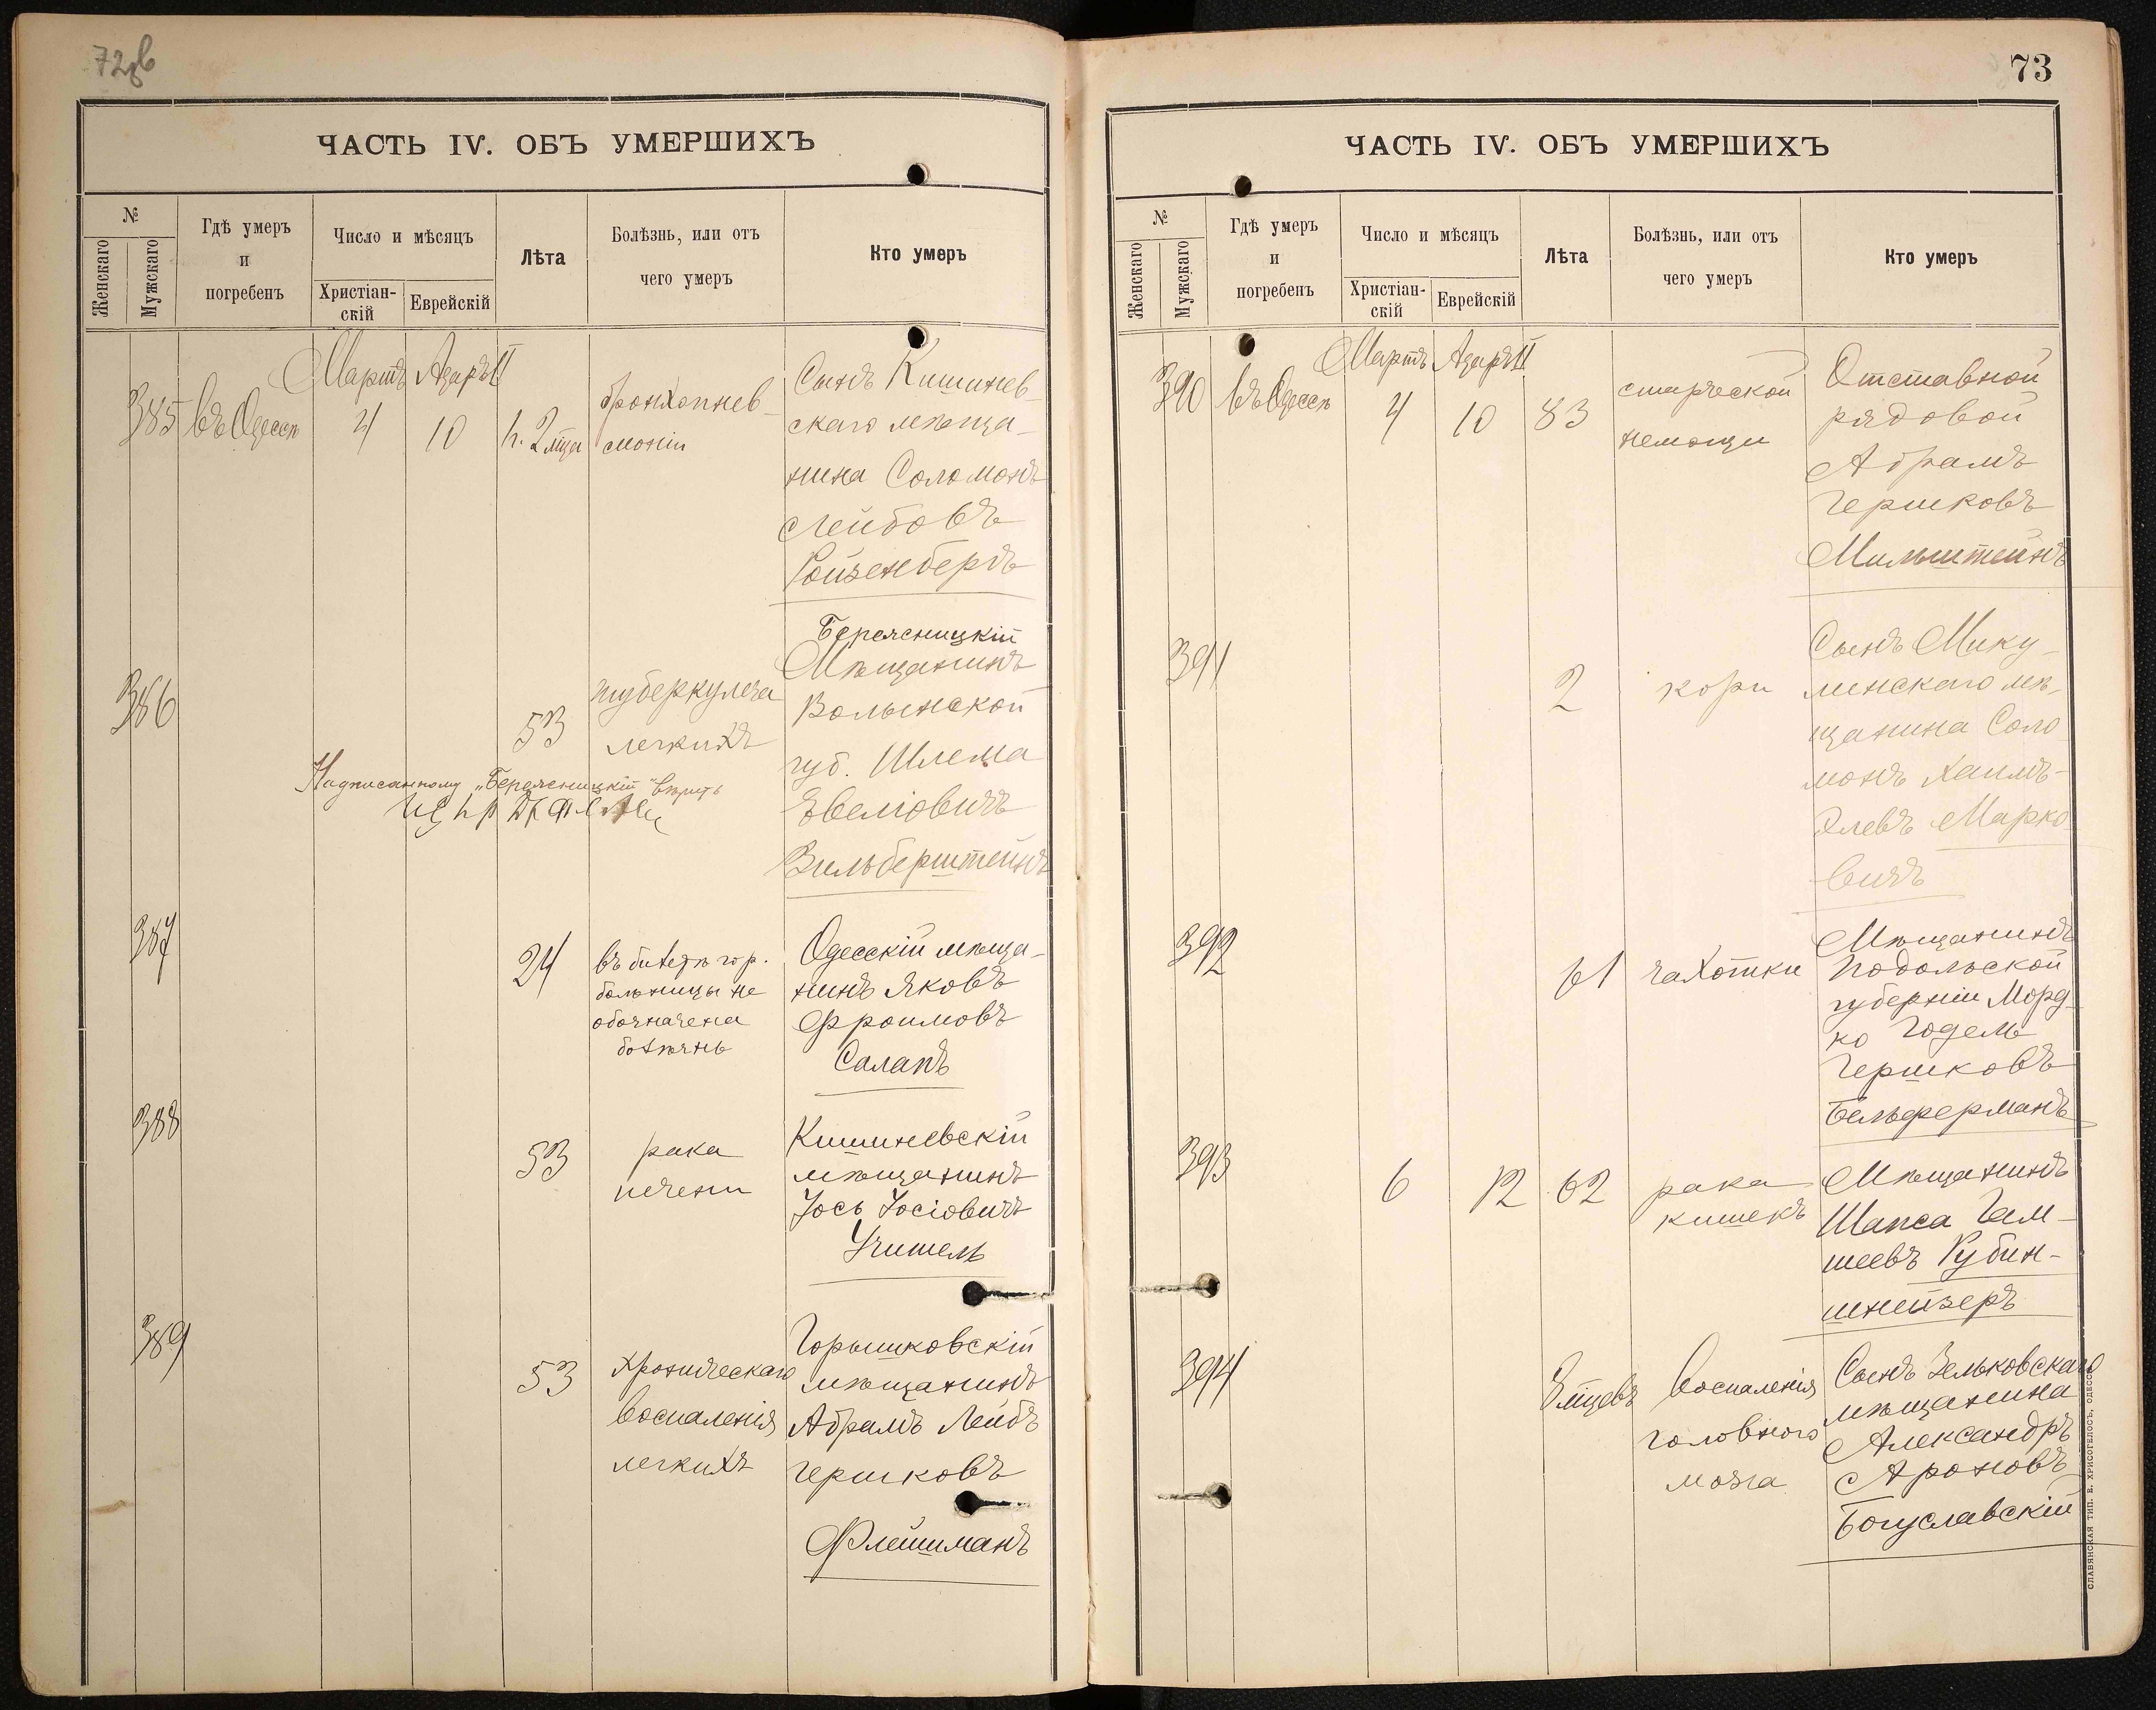 72об
ЧАСТЬ IV. ОБЪ УМЕРШИХЪ
№
Женскаго
Мужскаго
Гдѣ умеръ
и
погребенъ
Число и мѣсяцъ
Христіан-
скій
Еврейскій
Лѣта
Болѣзнь, или отъ
чего умеръ
Кто умеръ
Мартъ Адаръ II
385 въ Одессѣ 4 10 1 г. 2 мца
бронхопнев-
моніи
Сынъ Кишинев-
скаго мѣща-
нина Соломонъ
Лейбовъ
Ройзенбергъ
386
53
туберкулеза
легкихъ
Бережницкій
Мѣщанинъ
Волынской
губ. Шлема
Эвеліовичъ
Зильберштейнъ
Надписанному „Бережницкій" вѣрить
387
24
въ билетѣ гор.
больницы не
обозначена
болѣзнь
Одесскій мѣща-
нинъ Яковъ
Фроимовъ
Салапъ
388
53
рака
печени
Кишиневскій
мѣщанинъ
Іось Іосіовичъ
Учитель
389
53
хроническаго
воспаленія
легкихъ
Горышковскій
мѣщанинъ
Абрамъ Лейбъ
Гершковъ
Флейшманъ
73
ЧАСТЬ IV. ОБЪ УМЕРШИХЪ
№
Женскаго
Мужскаго
Гдѣ умеръ
и
погребенъ
Число и мѣсяцъ
Христіан-
скій
Еврейскій
Лѣта
Болѣзнь, или отъ
чего умеръ
Кто умеръ
Мартъ Адаръ II
390 въ Одессѣ 4 10 83
старческой
немощи
Отставной
рядовой
Абрамъ
Гершковъ
Мильштейнъ
391
2
кори
Сынъ Мику-
линскаго мѣ-
щанина Соло
монъ Хаимъ-
Элевъ Марко
вичъ
392
61
чахотки
Мѣщанинъ
Подольской
губерніиМорд-
ко Годель
Гершковъ
Бельферманъ
393
6 12 62
рака
кишекъ
Мѣщанинъ
Шапса Гам-
шеевъ Рубин-
шнейзеръ
394
8 мцевъ
воспаленія
головного
мозга
Сынъ Зельковскаго
мѣщанина
Александръ
Ароновъ
Богуславскій
СЛАВЯНСКАЯ ТИП. Е. ХРИСОГЕЛОСЪ, ОДЕССА